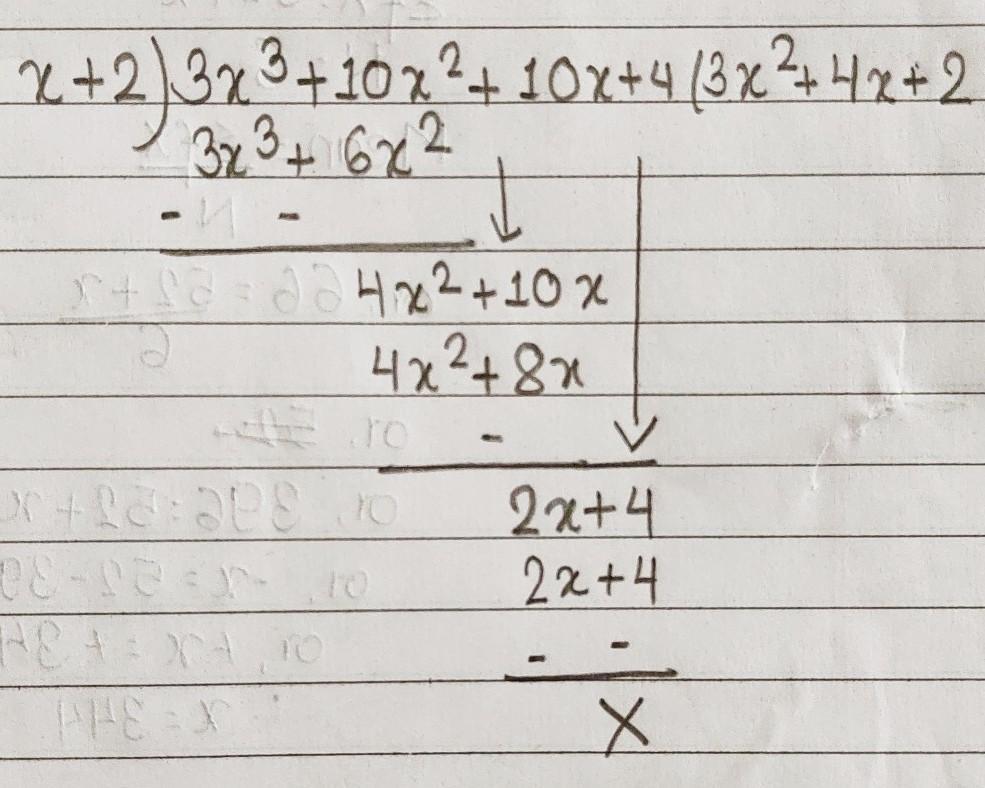 x+2)3x³+10x²+10x+4(3x²+4x+2
3x³+6x²
- -
4x²+10x
4x²+8x
-
2x+4
2x+4
- -
X